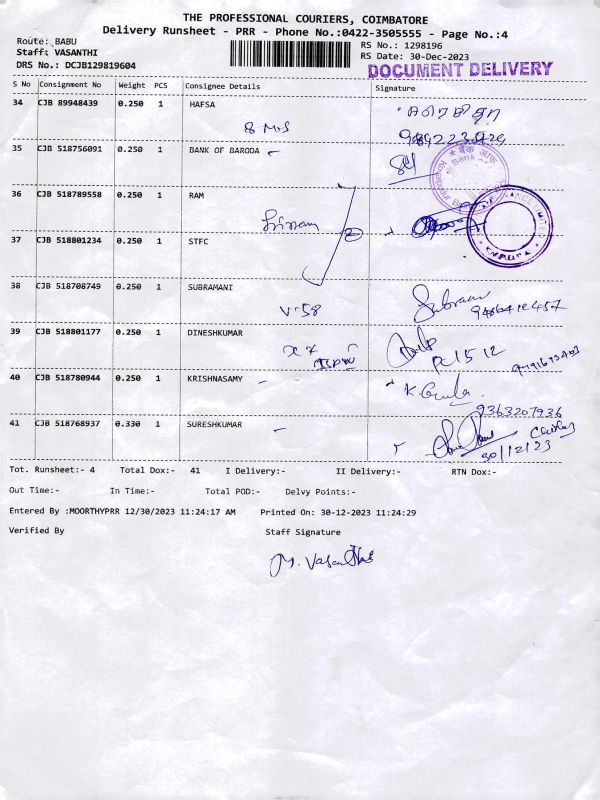 THE PROFESSIONAL COURIERS, COIMBATORE
Delivery Runsheet - PRR - Phone No.:0422-3505555 - Page No.:4
Route: BABU
RS No.: 1298196
Staff: VASANTHI
RS Date: 30-Dec-2023
DRS No.: DCJB129819604
DOCUMENT DELIVERY
S No Consignment No Weight PCS Consignee Details Signature
34 CJB 89948439 0.250 1 HAFSA
35 CJB 518756091 0.250 1 BANK OF BARODA
36 CJB 518789558 0.250 1 RAM
37 CJB 518801234 0.250 1 STFC
38 CJB 518708749 0.250 1 SUBRAMANI
V-58
39 CJB 518801177 0.250 1 DINESHKUMAR
PC1512
40 CJB 518780944 0.250 1 KRISHNASAMY
9363207936
41 CJB 518768937 0.330 1 SURESHKUMAR
30/12/23
Tot. Runsheet:- 4 Total Dox:- 41 I Delivery:- II Delivery:- RTN Dox:-
Out Time:- In Time:- Total POD:- Delvy Points:-
Entered By :MOORTHYPRR 12/30/2023 11:24:17 AM Printed On: 30-12-2023 11:24:29
Verified By Staff Signature